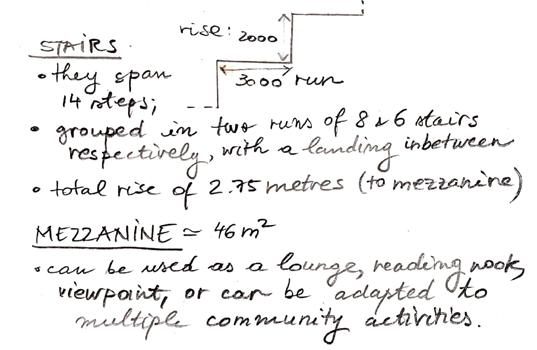 rise: 2000
STAIRS
3000 run
• they span
14 steps;
• grouped in two runs of 8 & 6 stairs
respectively, with a landing inbetween
• total rise of 2.75 metres (to mezzanine)
MEZZANINE ≃ 46 m²
• can be used as a lounge, reading nook,
viewpoint, or can be adapted to
multiple community activities.